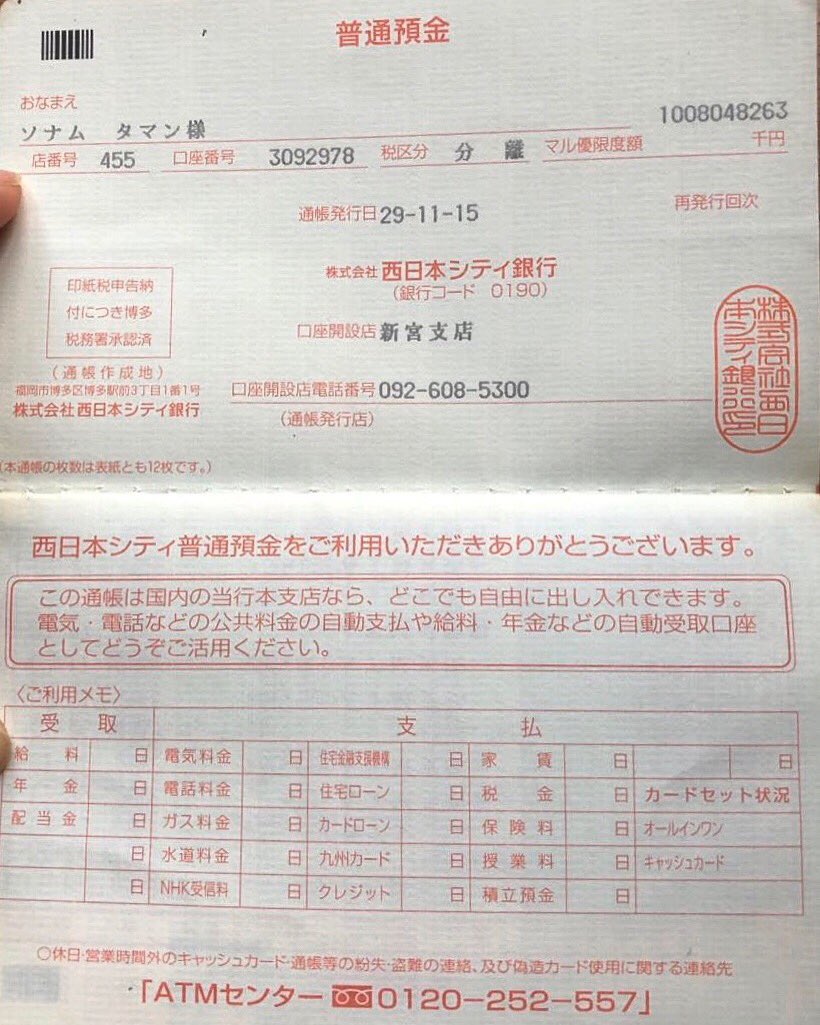 普通預金
おなまえ
ソナム タマン様
1008048263
店番号 455 口座番号 3092978 税区分 分 離 マル優限度額 千円
通帳発行日 29-11-15 再発行回次
株式会社 西日本シティ銀行
(銀行コード 0190)
口座開設店 新宮支店
印紙税申告納
付につき博多
税務署承認済
(通帳作成地)
福岡市博多区博多駅前3丁目1番1号
株式会社 西日本シティ銀行
口座開設店電話番号 092-608-5300
(通帳発行店)
株式会社西日
本シティ銀行印
(本通帳の枚数は表紙とも12枚です。)
西日本シティ普通預金をご利用いただきありがとうございます。
この通帳は国内の当行本支店なら、どこでも自由に出し入れできます。
電気・電話などの公共料金の自動支払や給料・年金などの自動受取口座
としてどうぞご活用ください。
〈ご利用メモ〉
受 取 支 払
給 料 日 電気料金 日 住宅金融支援機構 日 家 賃 日 日
年 金 日 電話料金 日 住宅ローン 日 税 金 日 カードセット状況
配当金 日 ガス料金 日 カードローン 日 保険料 日 オールインワン
日 水道料金 日 九州カード 日 授業料 日 キャッシュカード
日 NHK受信料 日 クレジット 日 積立預金 日
○休日・営業時間外のキャッシュカード・通帳等の紛失・盗難の連絡、及び偽造カード使用に関する連絡先
「ATMセンター 0120-252-557」